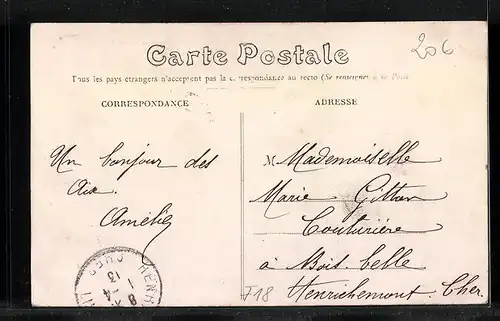 206
Carte Postale
Tous les pays étrangers n'acceptent pas la correspondance au recto (Se renseigner à la Poste
CORRESPONDANCE
ADRESSE
Un bonjour des
Aix.
Amélie
M Mademoiselle
Marie Gitton
Couturière
à Bois-belle
Henrichemont. Cher.
F18